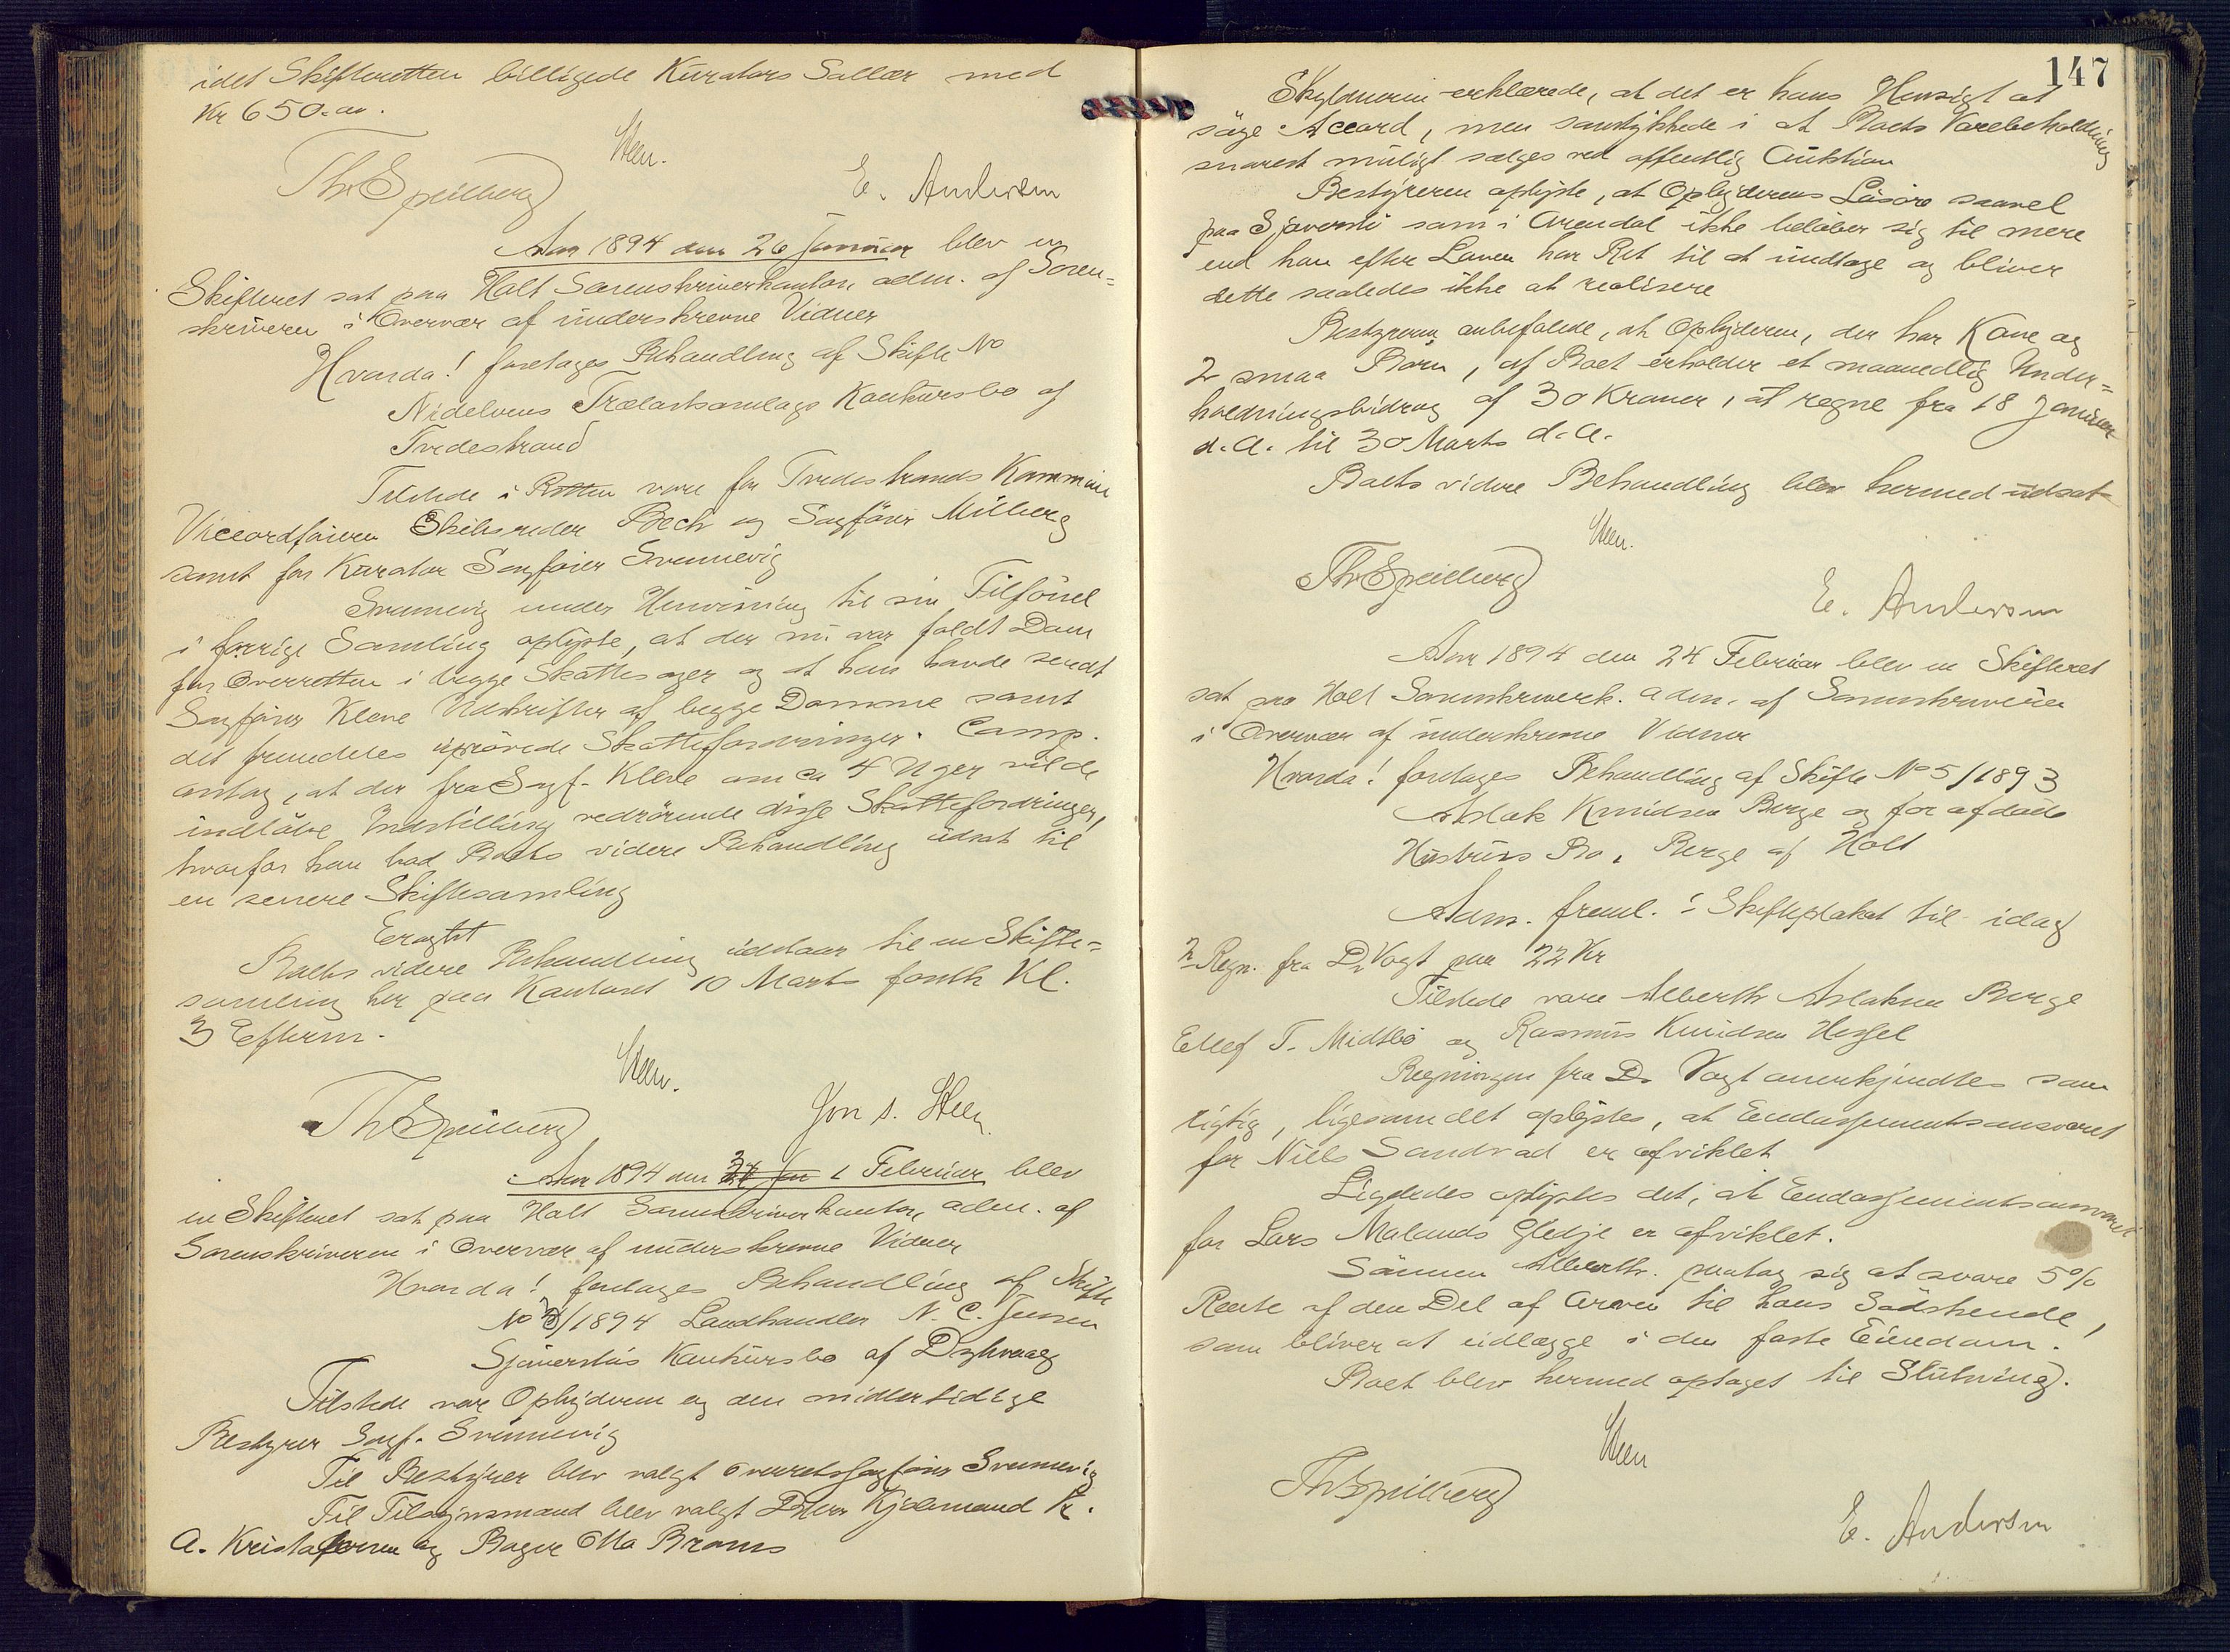 idet Skifteretten billigede Kurators Sallær med
Kr 650.00.
Steen.
Th Speilberg
E. Andersen
Aar 1894 den 26 Januar blev en
Skifteret sat paa Holt Sorenskriverkontor adm. af Soren=
skriveren i Overvær af underskrevne Vidner
Hvorda! foretages Behandling af Skifte No
Nidelvens Trælastsomlags Konkursbo af
Tvedestrand
Tilstede i Retten vare for Tvedestrands Kommune
Viceordføreren Skibsreder Bech og Sagfører Milberg
samt for Kurator Sagfører Svennevig
Svennevig under Henvisning til sin Tilførsel
i forrige Samling oplyste, at der nu var faldt Dom
for Overretten i begge Skattesager og at han havde sendt
Sagfører Kleve Udskrifter af begge Domme samt
det fremdeles uprøvede Skattefordringer. Comp.
antog, at der fra Sagf. Kleve om ca 4 Uger vilde
indløbe Indstilling vedrørende disse Skattefordringer,
hvorfor han bad Boets videre Behandling udsat til
en senere Skiftesamling
Eragtet
Boets videre Behandling udstaar til en Skifte=
samling her paa Kontoret 10 Marts førstk Kl.
3 Efterm.
Steen.
Th Speilberg
Jon S. Steen
Aar 1894 den 1 Februar blev
en Skifteret sat paa Holt Sorenskriverkontor, adm. af
Sorenskriveren i Overvær af underskrevne Vidner
Hvorda! foretages Behandling af Skifte
No 3/1894 Landhandler N. C. Jensen
Sjøverstøs Konkursbo af Dybvaag
Tilstede var Opbyderen og den midlertidige
Bestyrer Sagf. Svennevig
Til Bestyrer blev valgt Overretssagfører Svennevig
Til Tilsynsmænd blev valgt DHrr Kjøbmand Kr.
A. Kristofersen og Bager Ola Broms
147
Skyldneren erklærede, at det er hans Hensigt at
søge Accord, men samtykkede i at Boets Varebeholdning
snarest muligt sælges ved offentlig Auktion
Bestyreren oplyste, at Opbyderens Løsøre saavel
paa Sjøverstø som i Arendal ikke beløber sig til mere
end han efter Loven har Ret til at undtage og bliver
dette saaledes ikke at realisere
Bestyreren anbefalede, at Opbyderen, der har Kone og
2 smaa Børn, af Boet erholder et maanedlig Under=
holdningsbidrag af 30 Kroner, at regne fra 18 Januar
d.A. til 30 Marts d.A.
Boets videre Behandling blev hermed udsat
Steen.
Th Speilberg
E. Andersen
Aar 1894 den 24 Februar blev en Skifteret
sat paa Holt Sorenskriverk. adm. af Sorenskriveren
i Overvær af underskrevne Vidner
Hvorda! foretages Behandling af Skifte No 5/1893
Aslak Knudsen Berge og før afdøde
Hustrus Bo, Berge af Holt
Adm. freml. 1 Skifteplakat til idag
2 Regn. fra Dr Vogt paa 22 Kr
Tilstede vare Alberth Aslaksen Berge
Ellef T. Midtbø og Rasmus Knudsen Hessel
Regningen fra Dr Vogt anerkjendtes som
rigtig, ligesom det oplystes, at Endossementsansvaret
for Niels Sandvad er afviklet
Ligeledes oplystes det, at Endossementsansvaret
for Lars Molands Gledje er afviklet.
Sønnen Alberth. paatog sig at svare 5%
Rente af den Del af Arven til hans Sødskende,
som bliver at udlægge i den faste Eiendom.
Boet blev hermed optaget til Slutning.
Steen
Th Speilberg
E. Andersen